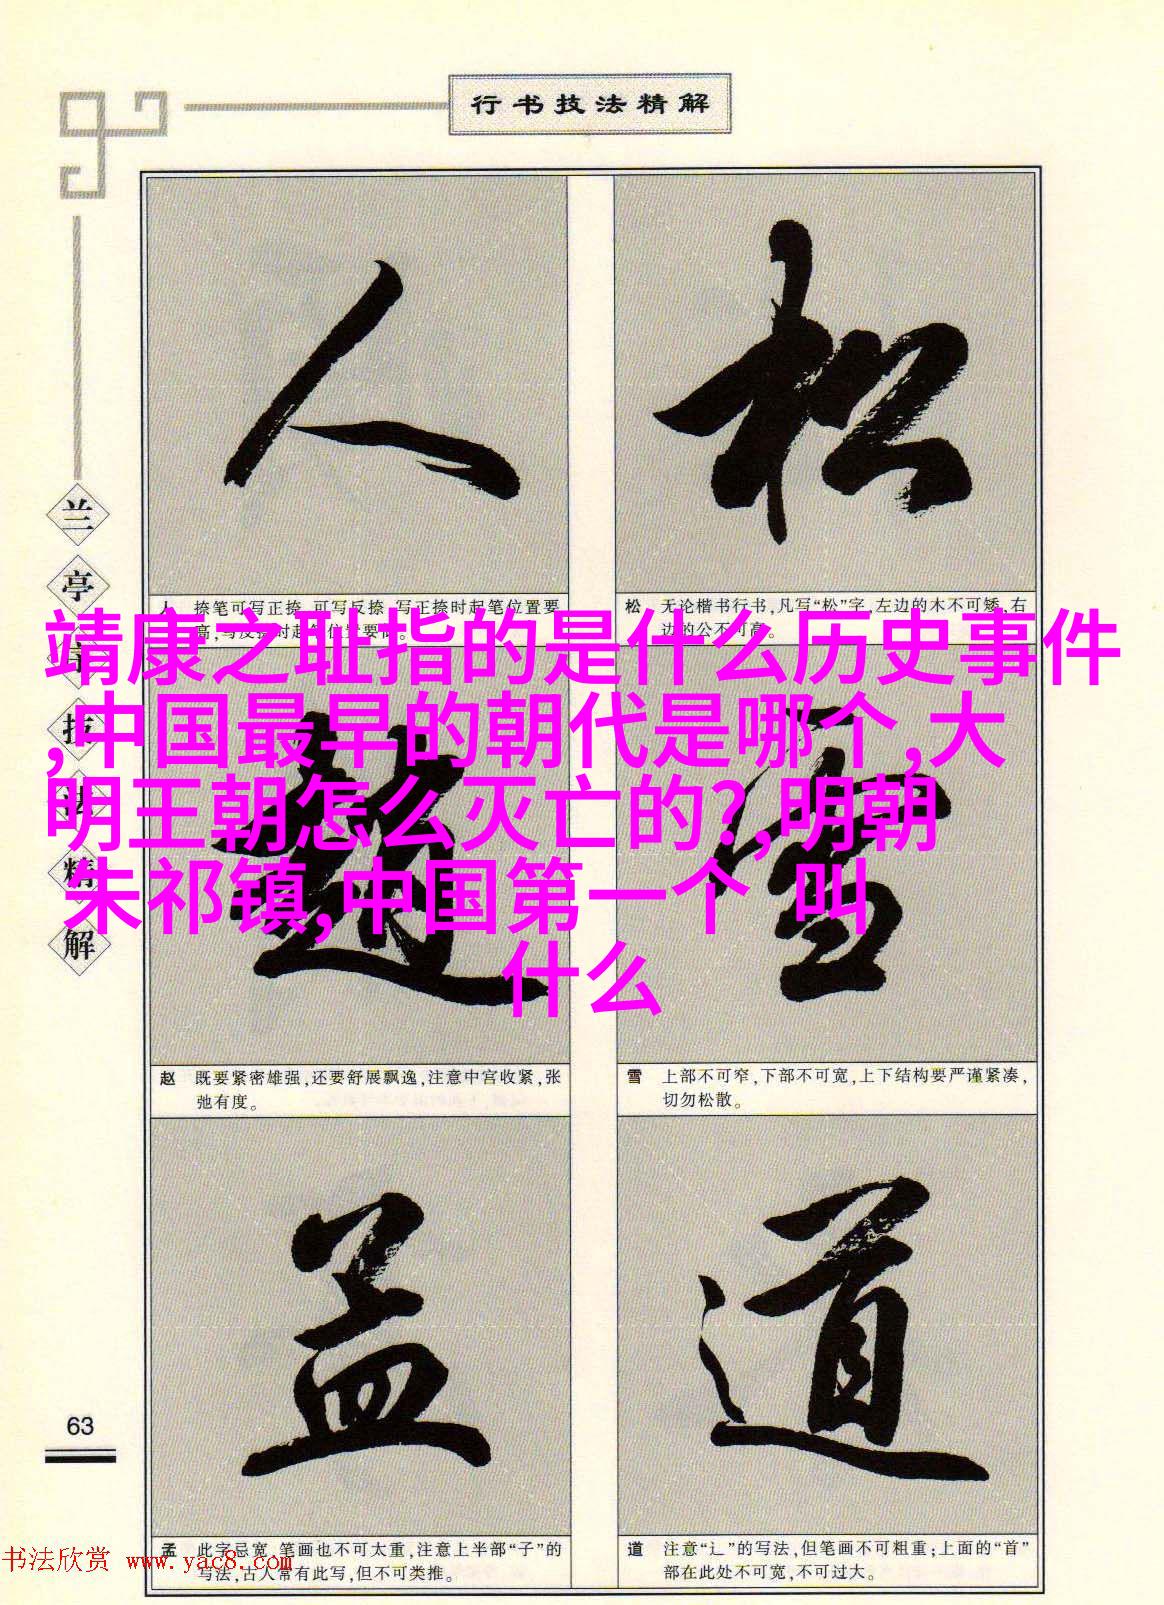 行书技法精解
兰亭
技法精解
人
松
人 捺笔可写正捺,可写反捺,写正捺时起笔位置要
高,写反捺时起笔位置要
松 无论楷书行书,凡写“松”字,左边的木不可矮,右
边的公不可高。
靖康之耻指的是什么历史事件
,中国最早的朝代是哪个,大
明王朝怎么灭亡的?,明朝
朱祁镇,中国第一个 叫
什么
赵
雪
赵 既要紧密雄强,还要舒展飘逸,注意中宫收紧,张
弛有度。
雪 上部不可窄,下部不可宽,上下结构要严谨紧凑,
切勿松散。
孟
道
孟 此字忌宽,笔画也不可太重,注意上半部“子”的
写法,古人常有此写,但不可类推。
道 注意“辶”的写法,但笔画不可粗重;上面的“首”
部在此处不可宽,不可过大。
63
书法欣赏 www.yac8.com